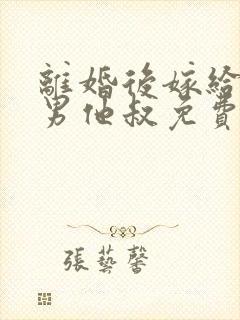 離婚後嫁給
男他叔免費
張藝馨